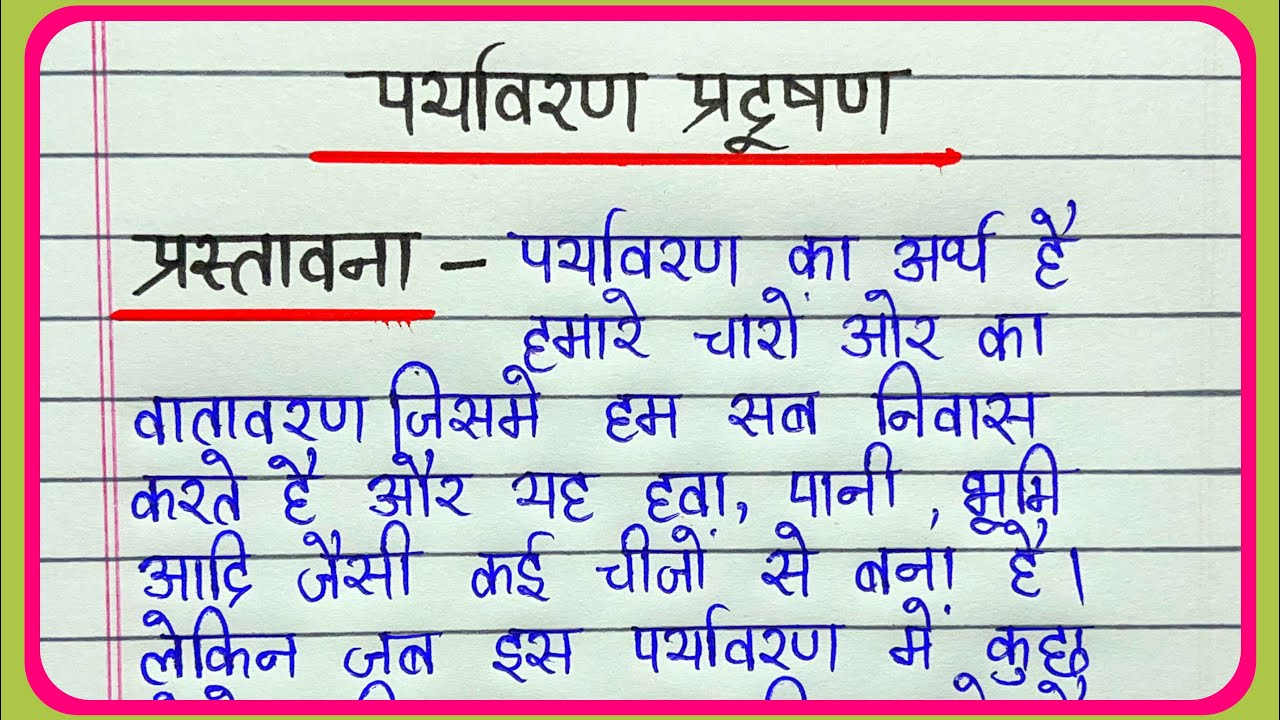 पर्यावरण प्रदूषण
प्रस्तावना - पर्यावरण का अर्थ है
हमारे चारों ओर का
वातावरण जिसमे हम सब निवास
करते है और यह हवा, पानी, भूमि
आदि जैसी कई चीजों से बना है।
लेकिन जब इस पर्यावरण में कुछ